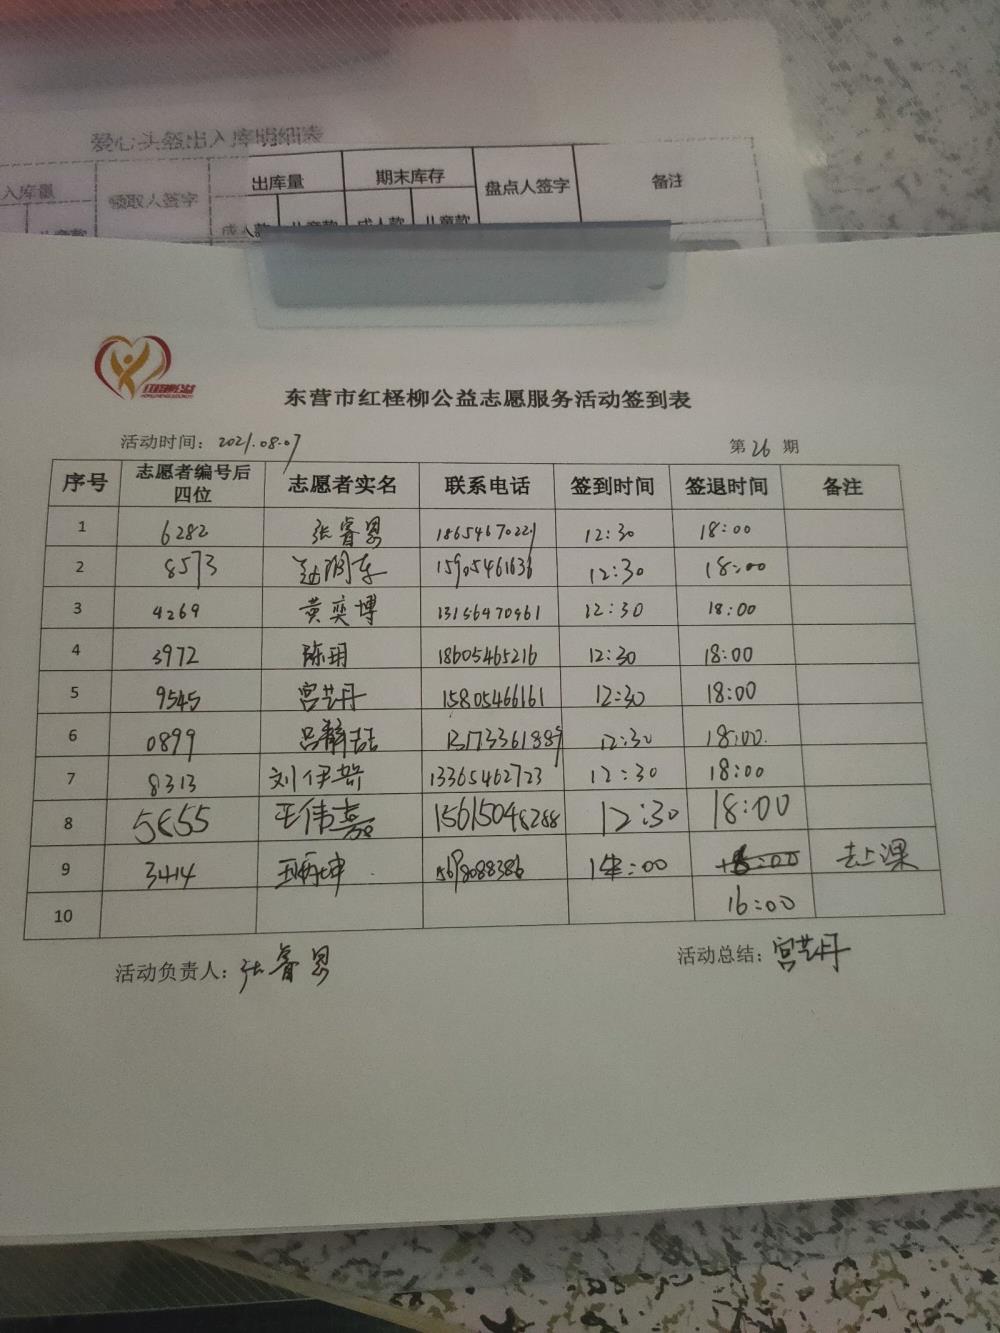 爱心头盔出入库明细表
入库量 领取人签字 出库量 期末库存 盘点人签字 备注
儿童款 成人款 儿童款 成人款 儿童款
东营市红柽柳公益志愿服务活动签到表
活动时间：2021.08.07 第26期
序号 志愿者编号后四位 志愿者实名 联系电话 签到时间 签退时间 备注
1 6282 张睿恩 18654670221 12:30 18:00
2 8573 15905461636 12:30 18:00
3 4269 黄奕博 13156470961 12:30 18:00
4 3972 陈玥 18605465216 12:30 18:00
5 9545 宫艺丹 15805466161 12:30 18:00
6 0899 吕静喆 13173361889 12:30 18:00
7 8313 刘伊 13365462723 12:30 18:00
8 5655 王伟嘉 15615048288 12:30 18:00
9 3414 王炳坤 14:00 去上课
10 16:00
活动负责人：张睿恩 活动总结：宫艺丹